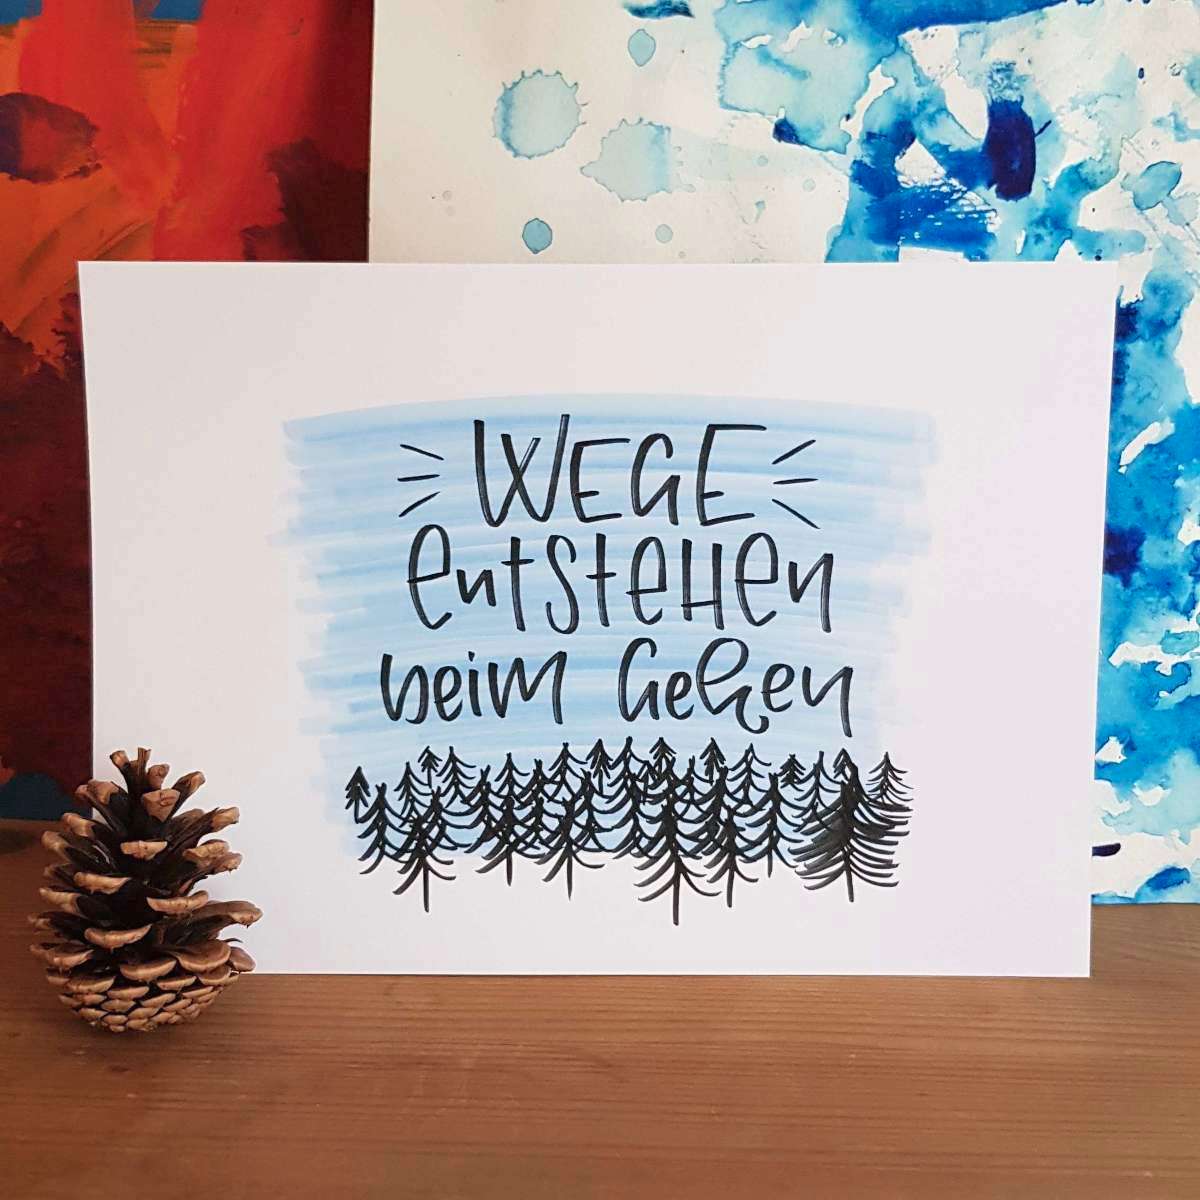 WEGE
entsteHen
beim Gehen